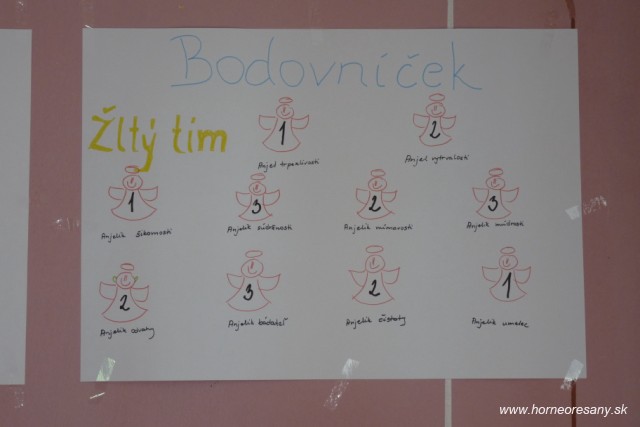 Bodovníček
Žltý tím
1
2
Anjel trpezlivosti
Anjel vytrvalosti
1
3
2
3
Anjelik šikovnosti
Anjelik
Anjelik
Anjelik múdrosti
2
3
2
1
Anjelik odvahy
Anjelik bádateľ
Anjelik čistoty
Anjelik umelec
www.horneoresany.sk